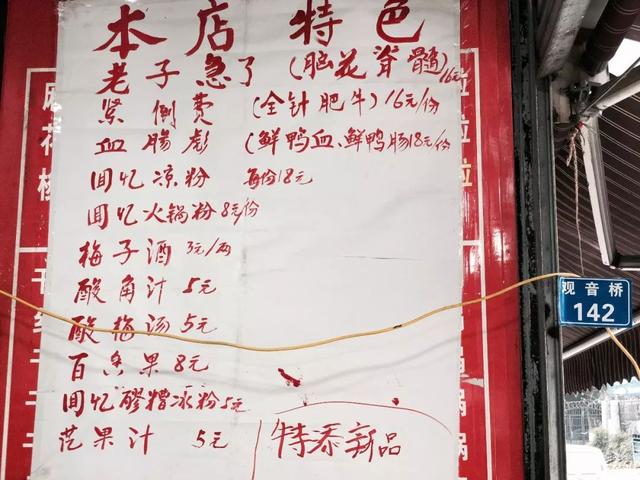 本店特色
老子急了 (脑花脊髓) 16元
紧倒费 (金针肥牛) 16元/份
血肠彪 (鲜鸭血、鲜鸭肠18元/份
回忆凉粉 每份18元
回忆火锅粉 8元/份
梅子酒 3元/两
酸角汁 5元
酸梅汤 5元
百香果 8元
回忆醪糟冰粉5元
芒果汁 5元
特添新品
观音桥
142